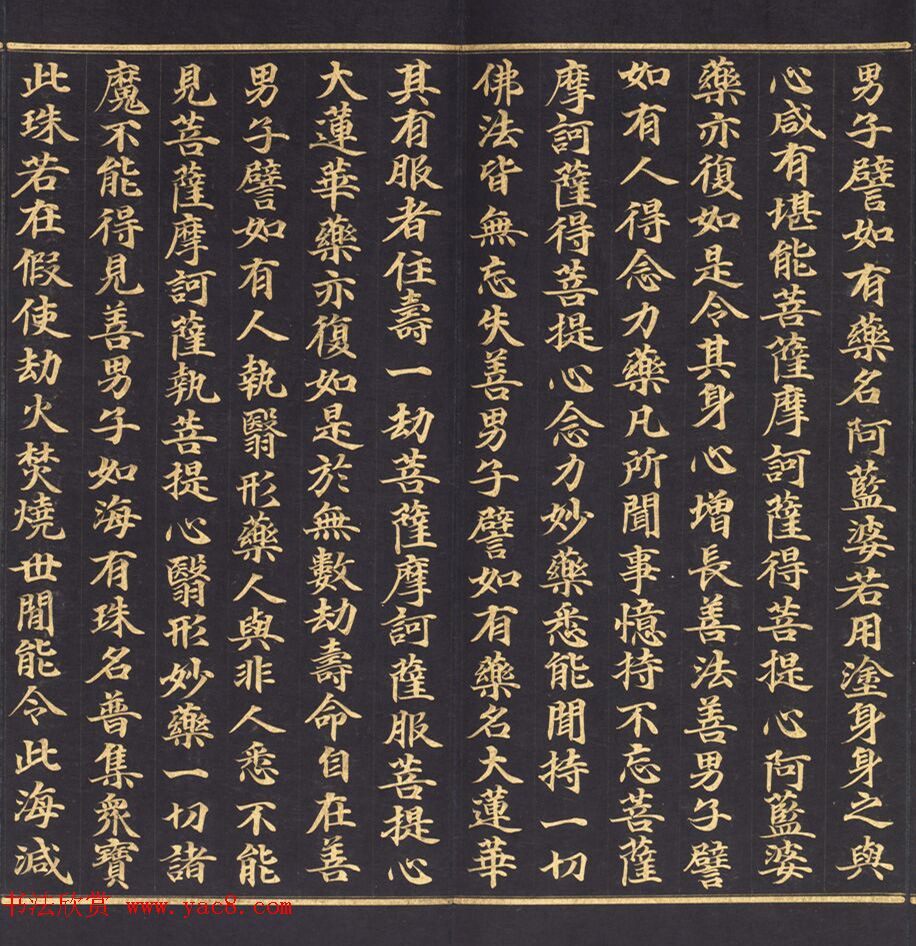 男子譬如有藥名阿藍婆若用塗身身之與
心咸有堪能菩薩摩訶薩得菩提心阿藍婆
藥亦復如是令其身心增長善法善男子譬
如有人得念力藥凡所聞事憶持不忘菩薩
摩訶薩得菩提心念力妙藥悉能聞持一切
佛法皆無忘失善男子譬如有藥名大蓮華
其有服者住壽一劫菩薩摩訶薩服菩提心
大蓮華藥亦復如是於無數劫壽命自在善
男子譬如有人執翳形藥人與非人悉不能
見菩薩摩訶薩執菩提心翳形妙藥一切諸
魔不能得見善男子如海有珠名普集眾寶
此珠若在假使劫火焚燒世間能令此海減
书法欣赏 www.yac8.com